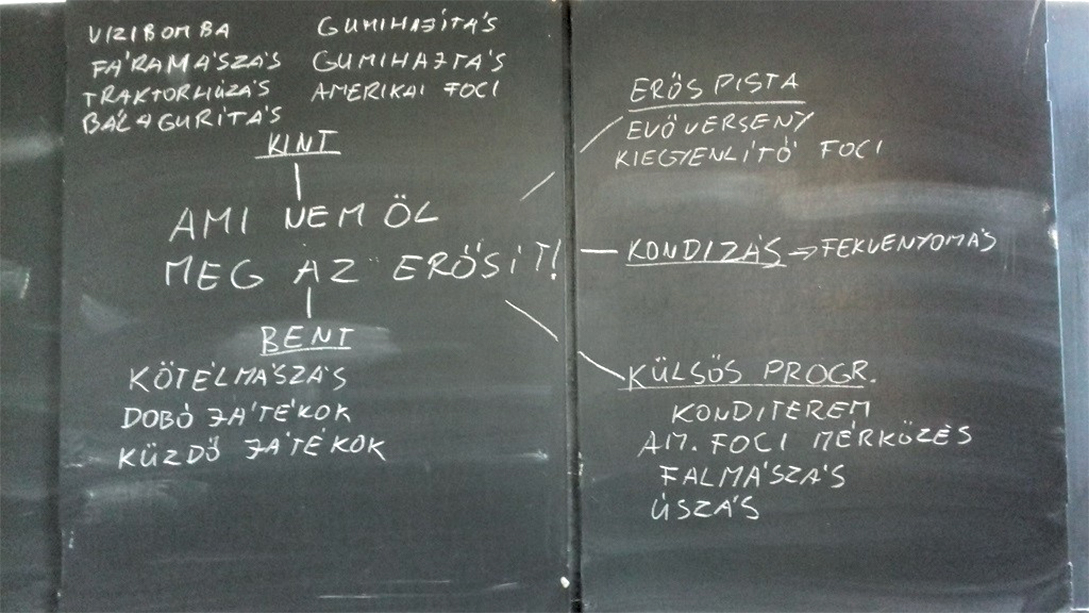 VIZIBOMBA
FÁRAMÁSZÁS
TRAKTORHÚZÁS
BÁLAGURÍTÁS
GUMIHAJÍTÁS
GUMIHAJTÁS
AMERIKAI FOCI
KINT
AMI NEM ÖL
MEG AZ ERŐSÍT!
BENT
KÖTÉLMÁSZÁS
DOBÓ JÁTÉKOK
KÜZDŐ JÁTÉKOK
ERŐS PISTA
EVŐVERSENY
KIEGYENLÍTŐ FOCI
KONDIZÁS → FEKVENYOMÁS
KÜLSŐS PROGR.
KONDITEREM
AM. FOCI MÉRKŐZÉS
FALMÁSZÁS
ÚSZÁS